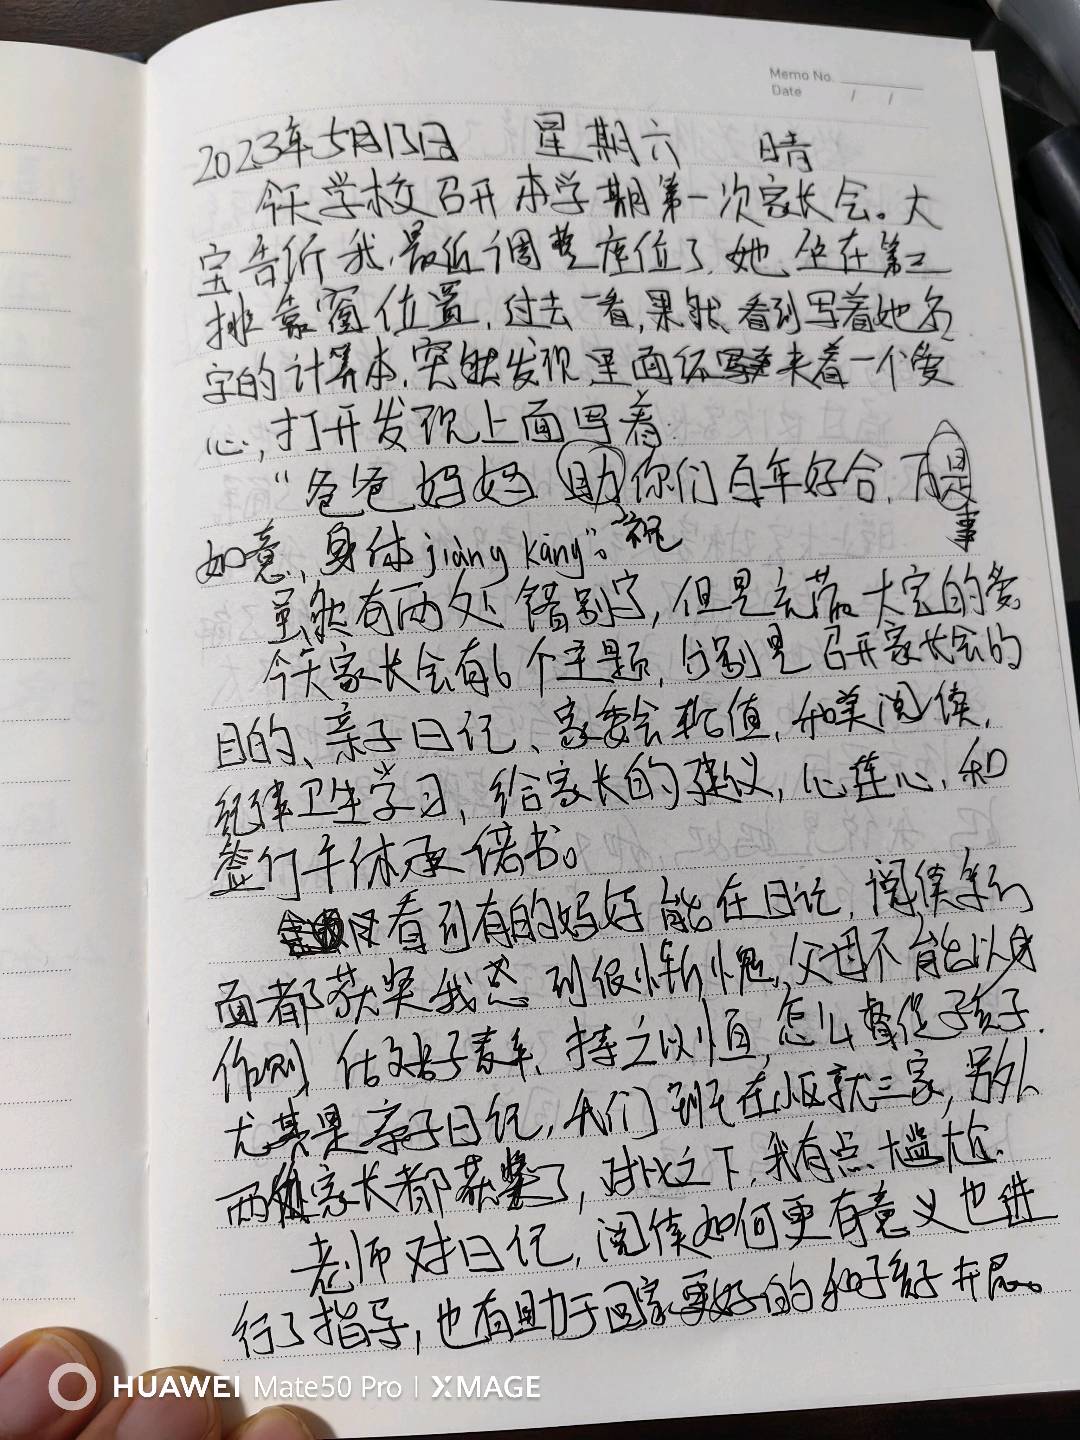 Memo No.
Date / /
2023年5月13日 星期六 晴
今天学校召开本学期第一次家长会。大
宝告诉我,最近调整座位了,她坐在第二
排靠窗位置,过去一看,果然看到写着她名
字的计算本,突然发现里面还夹着一个爱
心,打开发现上面写着:
“爸爸妈妈助你们百年好合,万是
如意,身体jiàng kāng”。祝
事
虽然有两处错别字,但是充满大宝的爱
今天家长会有6个主题,分别是召开家长会的
目的、亲子日记、家委会轮值,和美阅读,
纪律卫生学习,给家长的建议,心连心,和
签订午休承诺书。
看到有的妈妈能在日记,阅读等方
面都获奖我感到很惭愧,父母不能以身
作则 持之以恒,怎么督促孩子.
尤其是亲子日记,我们班在小区就三家,另外
两位家长都获奖了,对比之下,我有点尴尬.
老师对日记,阅读如何更有意义也进
行了指导,也有助于回家更好的和孩子开展。
HUAWEI Mate50 Pro | XMAGE